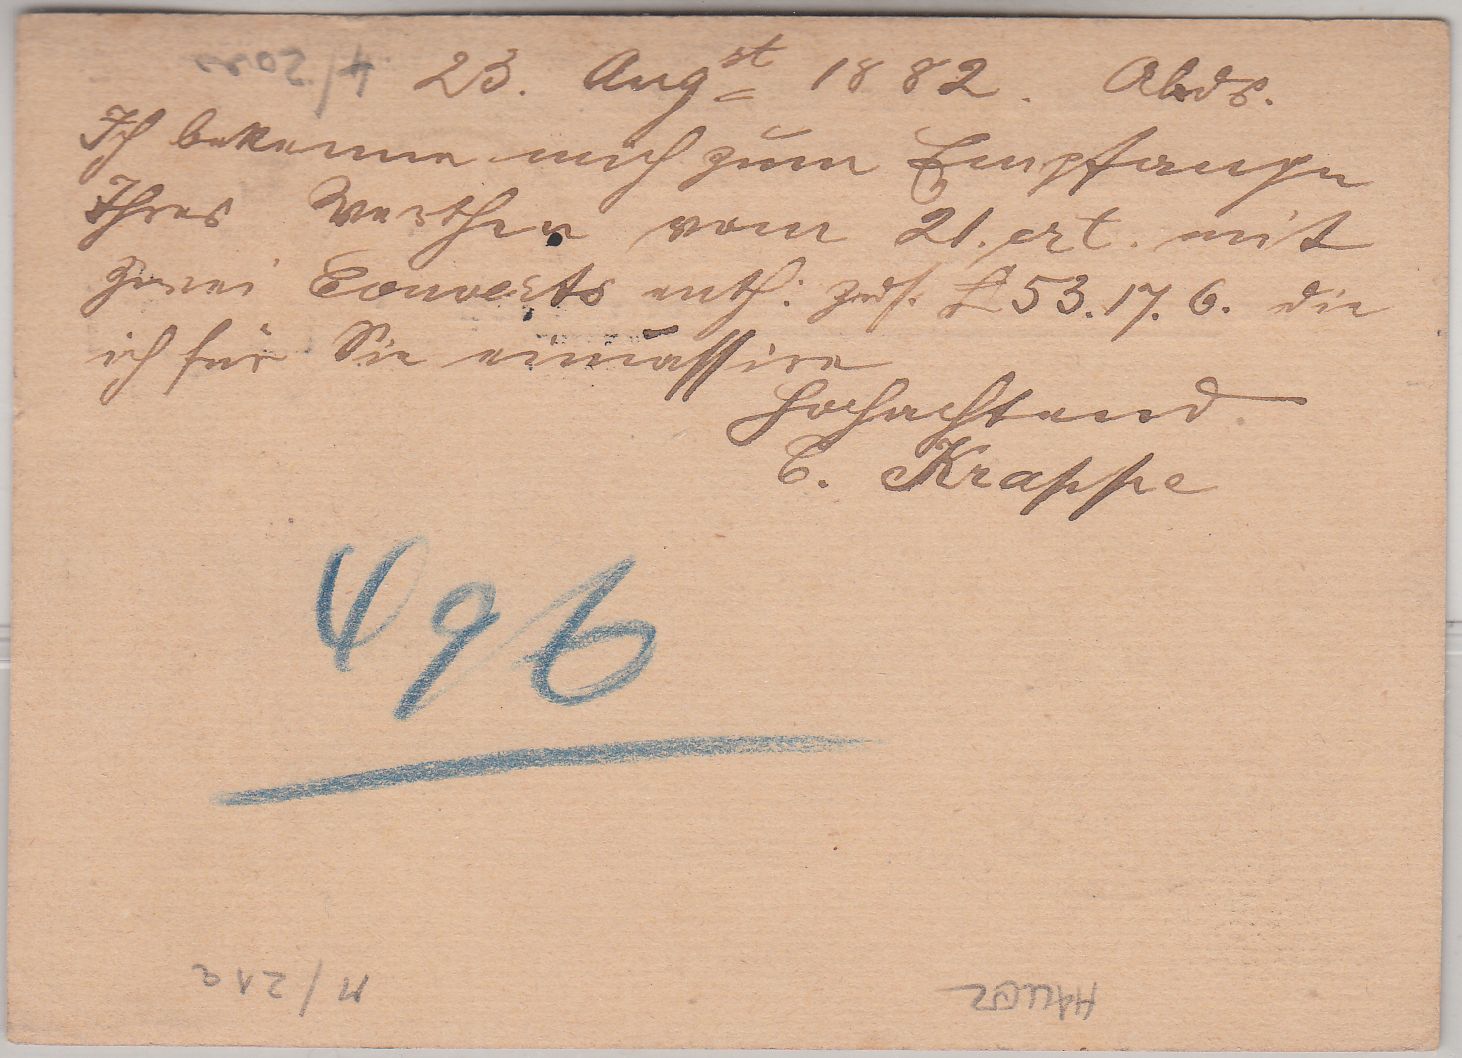 23. Augst 1882. Abds.
Ich bekenne mich zum Empfange
Ihres Werthen vom 21. crt. mit
zwei Couverts enth: zus. £ 53.17.6. die
ich für Sie encassire
Hochachtend
C. Krappe
496